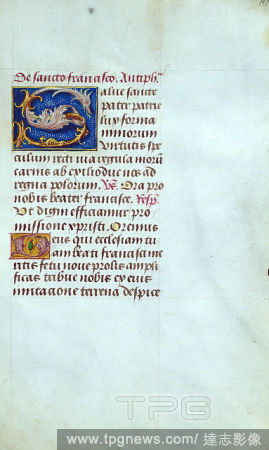 De sancto francisco. Antiph
Salue sancte
pater patrie
lux forma
minorum
virtutis spe
culum recti via regula morū
carnis ab exilio duc nos ad
regna polorum. Vs. Ora pro
nobis beate francisce. Resp.
Vt digni efficiamur pro
missione xpristi. Oremus
Deus qui ecclesiam tu
am beati francisci me
ritis fetu noue prolis ampli
ficas tribue nobis ex eius
imitacione terrena despice
TPG
www.tpgnews.com / 達志影像